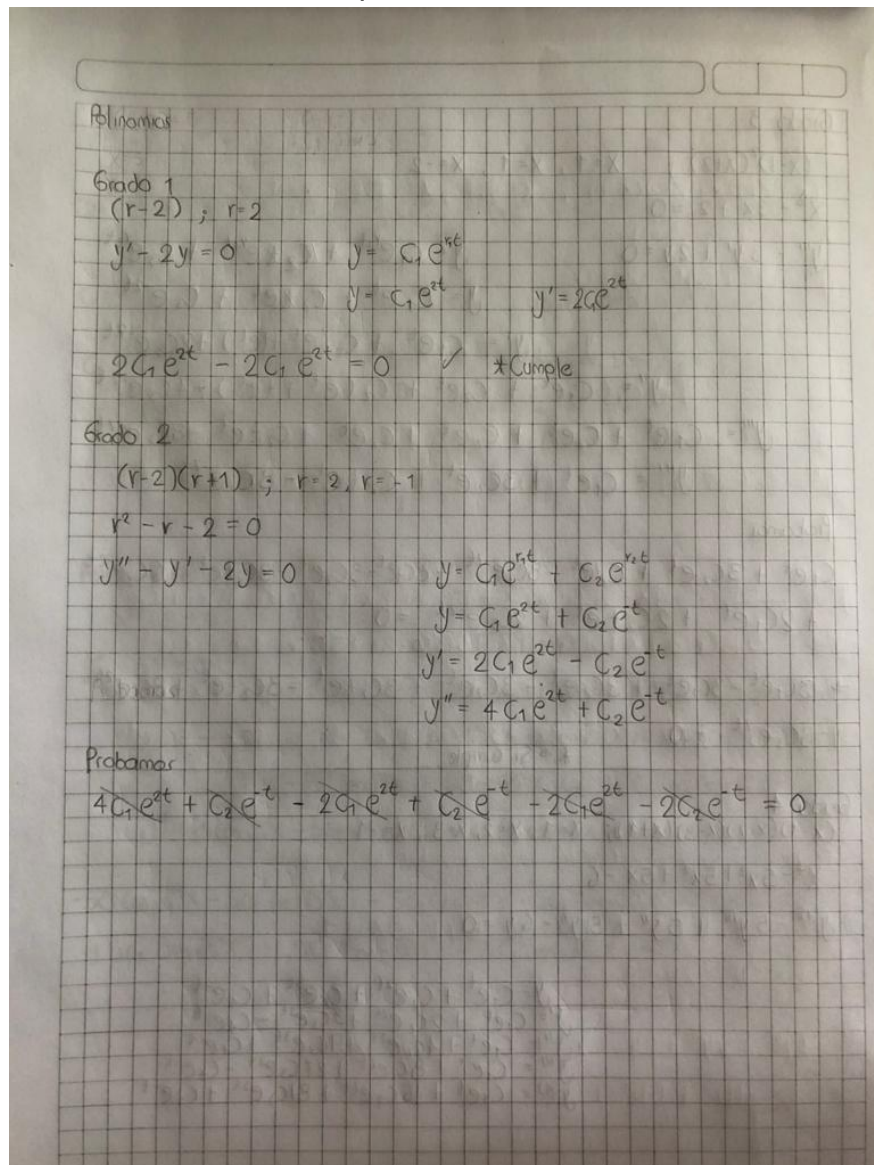 Polinomios
Grado 1
(r-2) ; r=2
y' - 2y = 0 y = C₁e^{r₁t}
y = C₁e^{2t} y' = 2C₁e^{2t}
2C₁e^{2t} - 2C₁e^{2t} = 0 ✓ *Cumple
Grado 2
(r-2)(r+1) ; r=2, r=-1
r² - r - 2 = 0
y'' - y' - 2y = 0 y = C₁e^{r₁t} + C₂e^{r₂t}
y = C₁e^{2t} + C₂e^{-t}
y' = 2C₁e^{2t} - C₂e^{-t}
y'' = 4C₁e^{2t} + C₂e^{-t}
Probamos
4C₁e^{2t} + C₂e^{-t} - 2C₁e^{2t} + C₂e^{-t} - 2C₁e^{2t} - 2C₂e^{-t} = 0